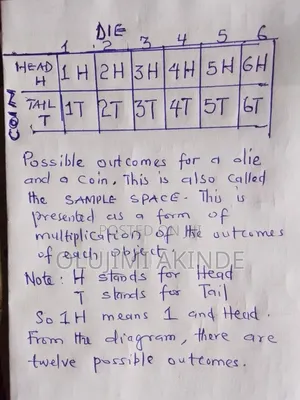 DIE
1 2 3 4 5 6
HEAD H 1H 2H 3H 4H 5H 6H
COIN
TAIL T 1T 2T 3T 4T 5T 6T
Possible outcomes for a die
and a coin. This is also called
the SAMPLE SPACE. This is
presented as a form of
POSTED ON
multiplication of the outcomes
of each object.
OLUJIMI AKINDE
Note: H stands for Head
T stands for Tail
So 1H means 1 and Head.
From the diagram, there are
twelve possible outcomes.